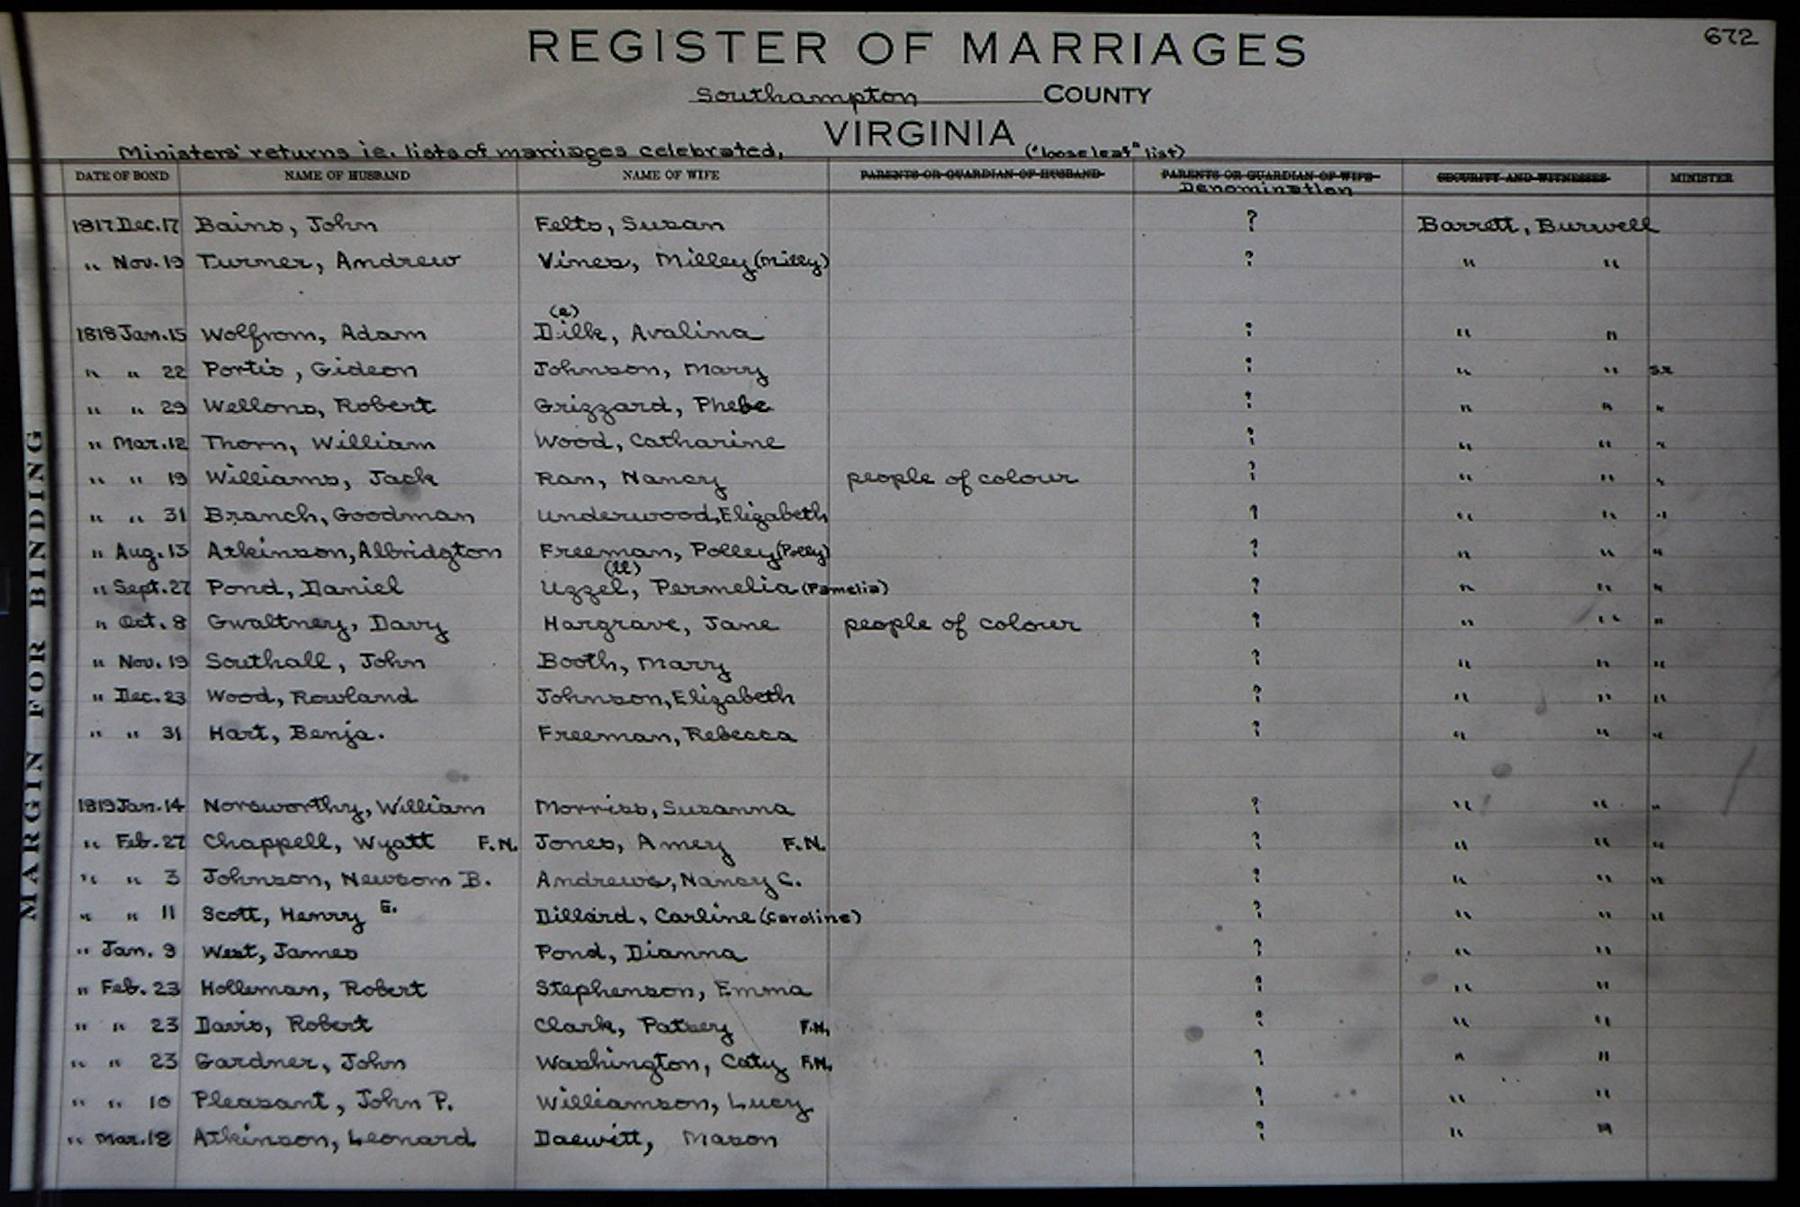 672
REGISTER OF MARRIAGES
Southampton COUNTY
VIRGINIA
Ministers' returns i.e. lists of marriages celebrated, ("loose leaf" list)
DATE OF BOND NAME OF HUSBAND NAME OF WIFE PARENTS OR GUARDIAN OF HUSBAND PARENTS OR GUARDIAN OF WIFE SECURITY AND WITNESSES MINISTER
Denomination
1817 Dec. 17 Bains, John Felts, Susan ? Barrett, Burwell
" Nov. 19 Turner, Andrew Vines, Milley (Milly) ? " "
(a)
1818 Jan. 15 Wolfrom, Adam Dilk, Avalina ? " "
" " 22 Portis, Gideon Johnson, Mary ? " " Sr
" " 29 Wellons, Robert Grizzard, Phebe ? " " "
" Mar. 12 Thorn, William Wood, Catharine ? " " "
" " 19 Williams, Jack Ran, Nancy people of colour ? " " "
" " 31 Branch, Goodman Underwood, Elizabeth ? " " "
" Aug. 13 Atkinson, Albridgton Freeman, Polley (Polly) ? " " "
(ll)
" Sept. 27 Pond, Daniel Uzzel, Permelia (Pamelia) ? " " "
" Oct. 8 Gwaltney, Davy Hargrave, Jane people of colour ? " " "
" Nov. 19 Southall, John Booth, Mary ? " " "
" Dec. 23 Wood, Rowland Johnson, Elizabeth ? " " "
" " 31 Hart, Benja. Freeman, Rebecca ? " " "
1819 Jan. 14 Norsworthy, William Morriss, Susanna ? " " "
" Feb. 27 Chappell, Wyatt F.N. Jones, Amey F.N. ? " " "
" " 3 Johnson, Newsom B. Andrews, Nancy C. ? " " "
" " 11 Scott, Henry G. Dillard, Carline (Caroline) ? " " "
" Jan. 9 West, James Pond, Dianna ? " "
" Feb. 23 Holleman, Robert Stephenson, Emma ? " "
" " 23 Davis, Robert Clark, Patsey F.N. ? " "
" " 23 Gardner, John Washington, Caty F.N. ? " "
" " 10 Pleasant, John P. Williamson, Lucy ? " "
" Mar. 18 Atkinson, Leonard Daewitt, Mason ? " "
MARGIN FOR BINDING